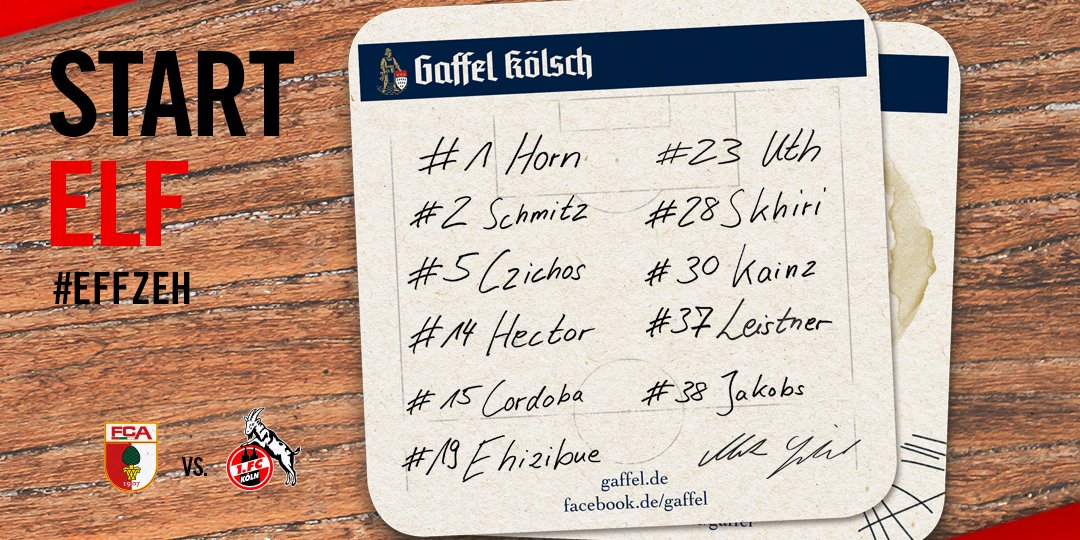 START
ELF
#EFFZEH
FCA
1907
VS.
1. FC
KÖLN
Gaffel Kölsch
#1 Horn
#2 Schmitz
#5 Czichos
#14 Hector
#15 Cordoba
#19 Ehizibue
#23 Uth
#28 Skhiri
#30 Kainz
#37 Leistner
#38 Jakobs
gaffel.de
facebook.de/gaffel